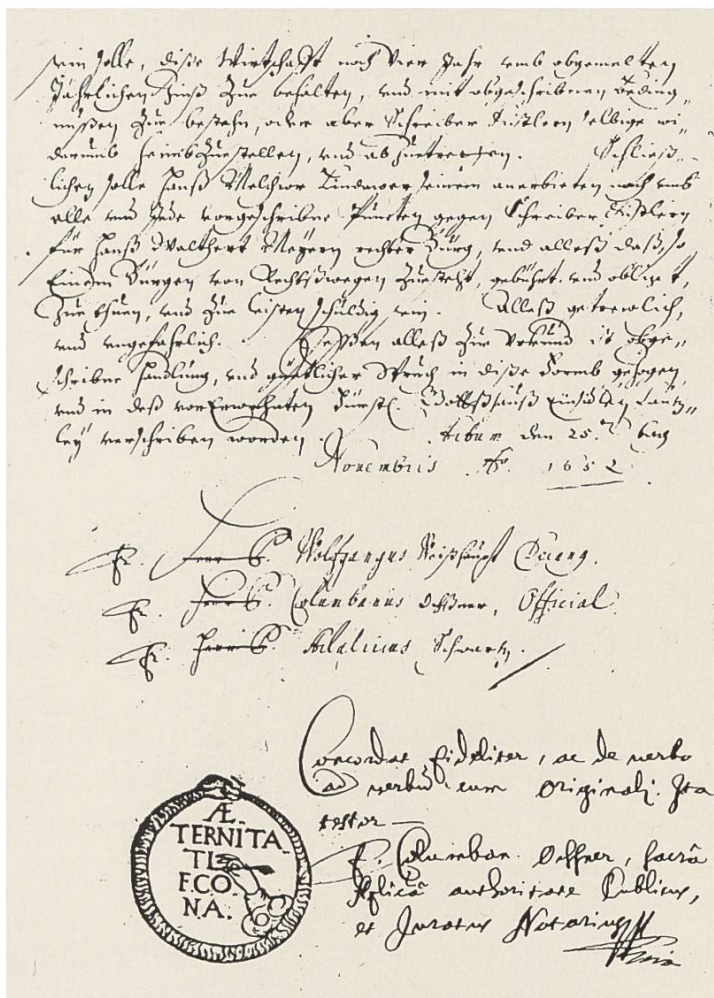 sein solle, diße Wirtschafft noch Vier Jahr umb obgemelten
Jährlichen Zinß Zue behalten, und mit obgeschribnen Beding„
nußen Zue bestehn, oder aber Schreiber Küstlern selbige wi„
derumb heimbZuestellen, und abZuetretten. Schließ„
lichen solle Hanß Melchior seinem anerbieten nach umb
alle und Jede vorgeschribne Puncten gegen Schreiber Küstlern
für Hanß Walthert Meyern rechter Bürg, und alleß daß, so
Einem Bürgen von Rechtßwegen Zuesteht, gebührt und obligt,
Zue thuen, und Zue leisten schuldig sein. Alleß getrewlich,
und ungefahrlich. Deßßen alleß Zue Vrkund ist obge„
schribne Handlung, und güetlicher Spruch in diße Formb
und in deß vorErwehnten Fürstl. Gottßhauß Einsidlen Cantz„
ley verschriben worden. Actum den 25.ten tag
Novembris Ao. 1652
Fr. Wolfgangus Weißhaupt Decang.
Fr. Columbanus Ochßner, Official
Fr. Adalricus Schwartz.
Concordat fideliter, ac de verbo
ad verbū cum Originali. Ita
testor
F. Columban. Ochsner, sacrâ
Aplicâ authoritate Publicus,
et Juratus Notarius
Æ
TERNITA
TI
F. CO
NA.